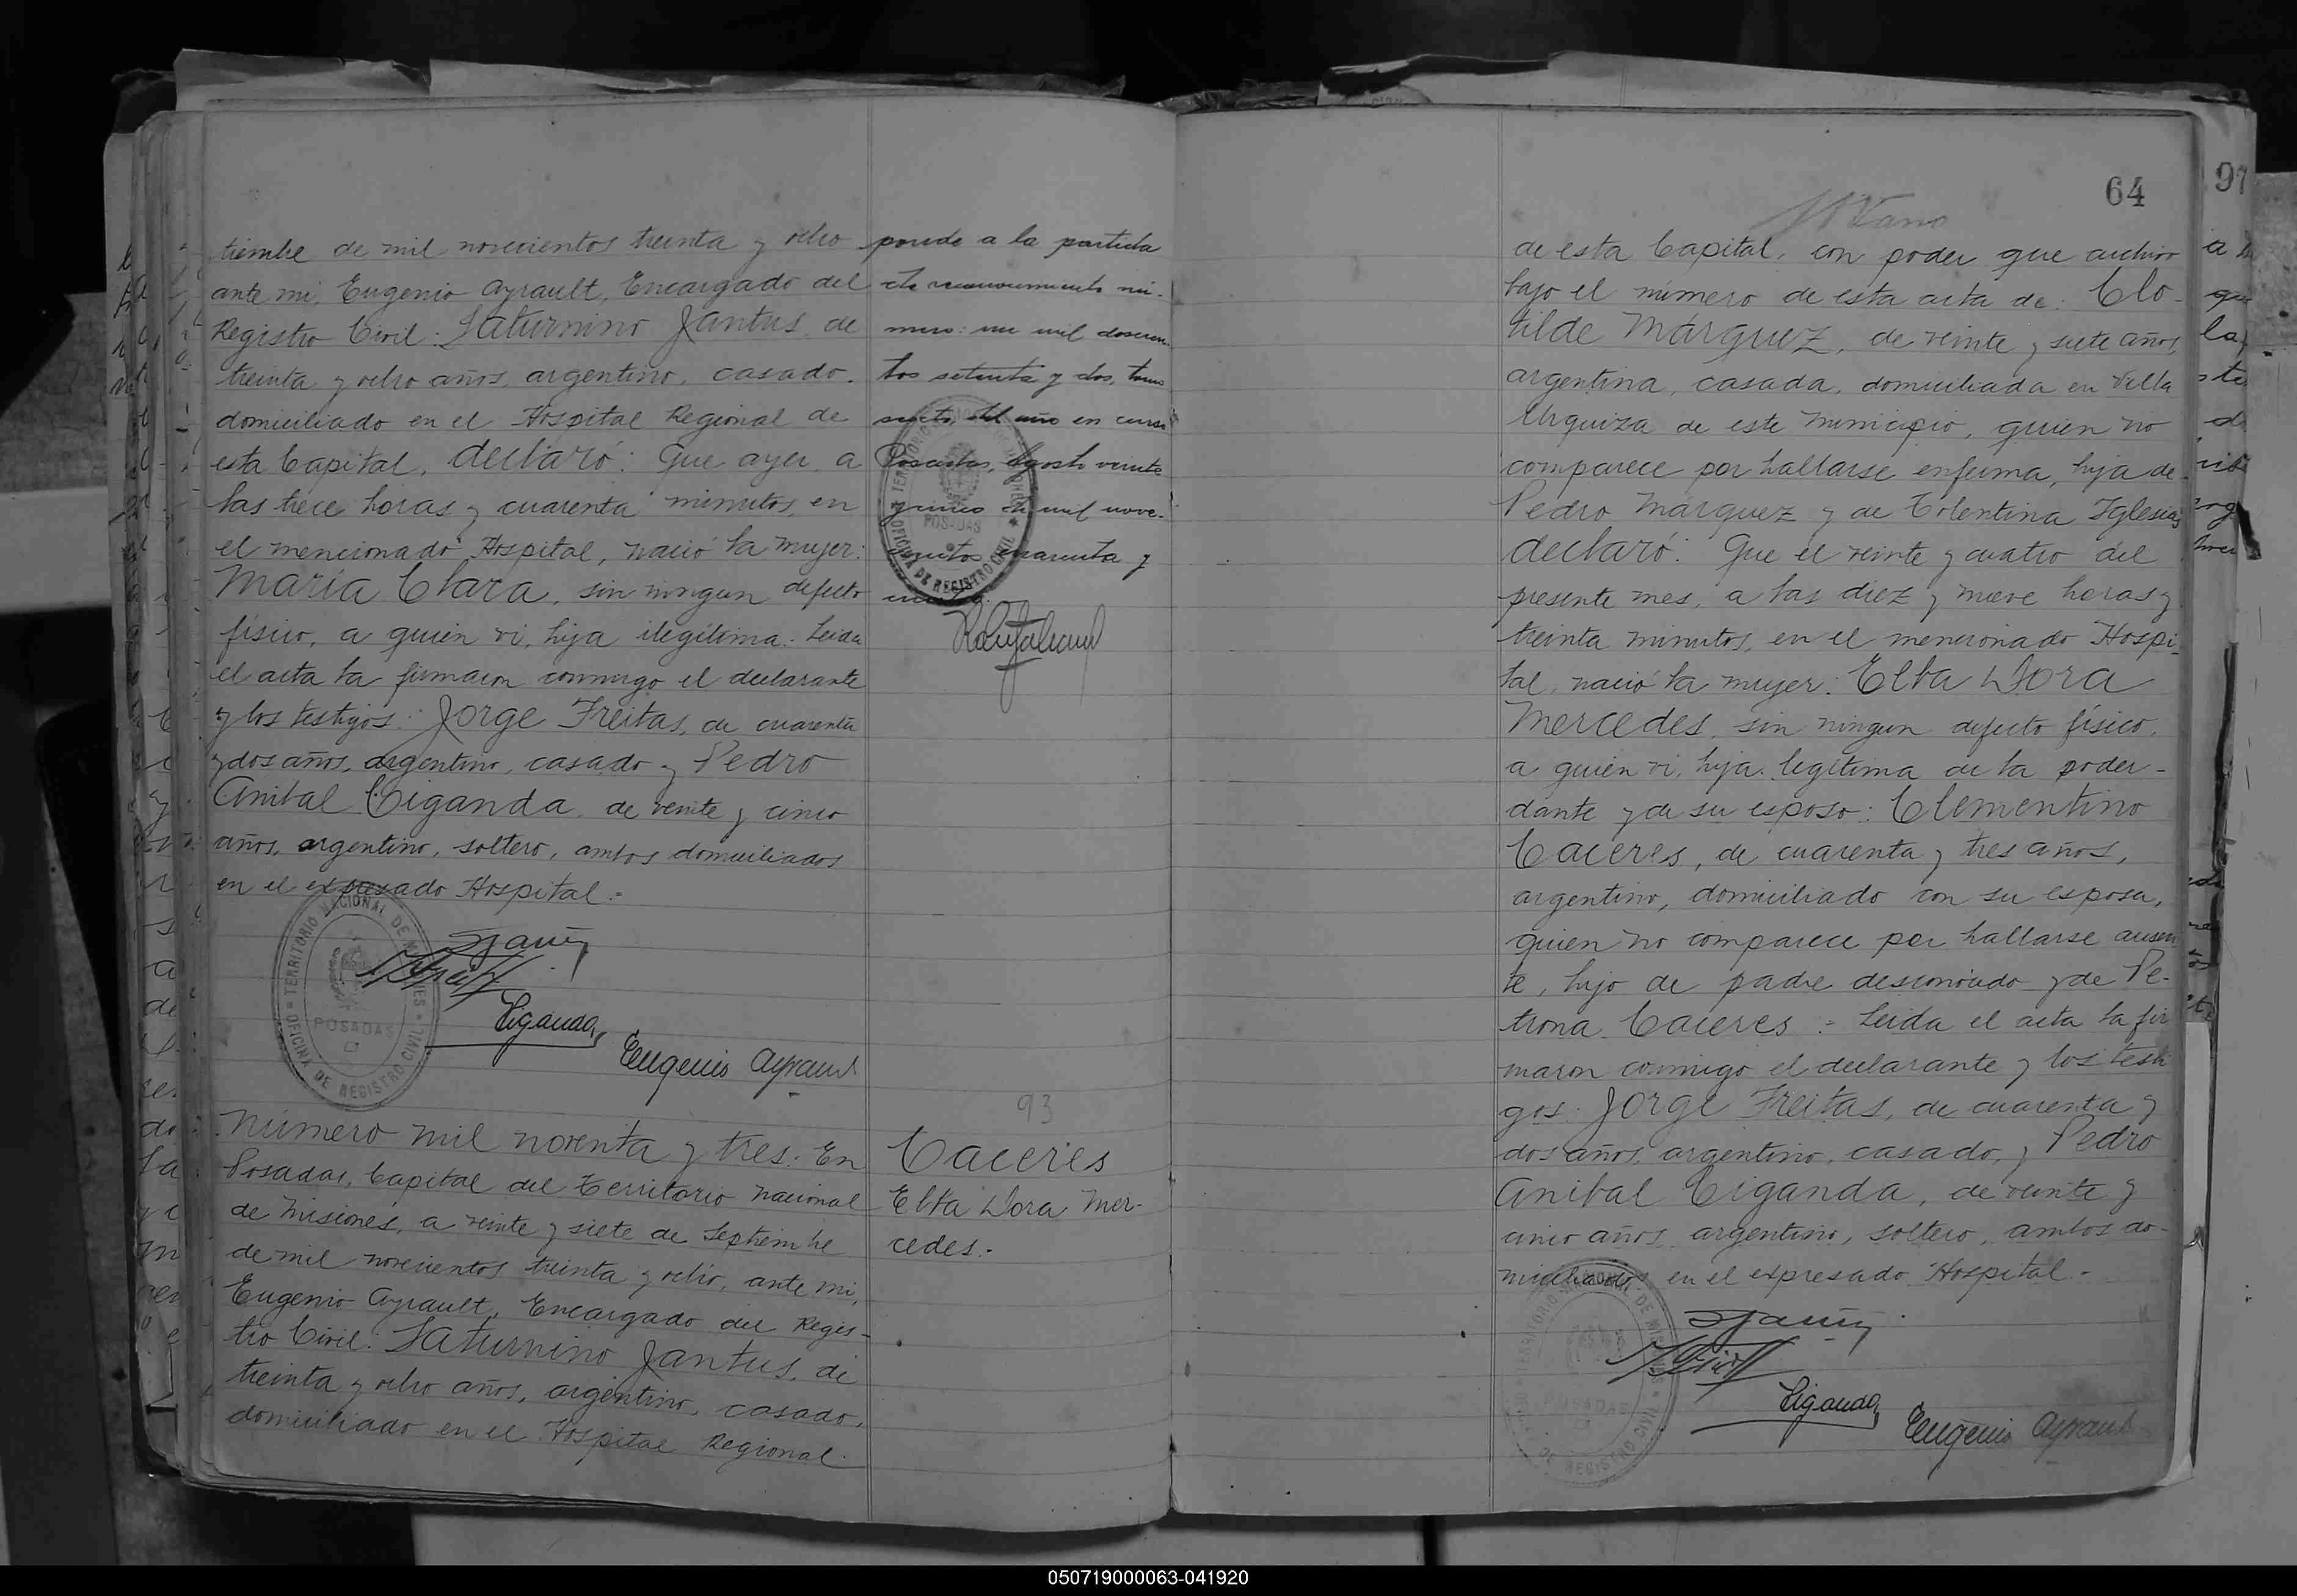 tiembre de mil novecientos treinta y ocho
ante mi, Eugenio Ayrault, Encargado del
Registro Civil: Saturnino Jantus, de
treinta y ocho años, argentino, casado,
domiciliado en el Hospital Regional de
esta Capital, declaró: Que ayer a
las trece horas y cuarenta minutos, en
el mencionado Hospital, nació la mujer:
María Clara, sin ningun defecto
físico, a quién vi, hija ilegítima. Leida
el acta la firmaron conmigo el declarante
y los testigos: Jorge Freitas, de cuarenta
y dos años, argentino, casado y Pedro
Anibal Ciganda, de veinte y cinco
años, argentino, soltero, ambos domiciliados
en el expresado Hospital.=
TERRITORIO NACIONAL DE MISIONES
POSADAS
OFICINA DE REGISTRO CIVIL
Ciganda
Eugenio Ayrault
Número mil noventa y tres: En
Posadas, Capital del Territorio Nacional
de Misiones, a veinte y siete de Septiembre
de mil novecientos treinta y ocho, ante mi,
Eugenio Ayrault, Encargado del Regis-
tro Civil: Saturnino Jantus, de
treinta y ocho años, argentino, casado,
domiciliado en el Hospital Regional
ponde a la partida
de reconocimiento nú-
mero: un mil doscien-
tos setenta y dos, tomo
sexto, del año en curso
Posadas, Agosto veinte
y cinco de mil nove-
cientos cuarenta y
OFICINA DE REGISTRO CIVIL
POSADAS
93
Caceres
Elba Dora Mer-
cedes.-
64
97
de esta Capital, con poder que archivo
bajo el número de esta acta de: Clo-
tilde Márquez, de veinte y siete años,
argentina, casada, domiciliada en Villa
Urquiza de este Municipio, quién no
comparece por hallarse enferma, hija de
Pedro Márquez y de Tolentina Iglesias
declaró: Que el veinte y cuatro del
presente mes, a las diez y nueve horas y
treinta minutos, en el mencionado Hospi-
tal, nació la mujer: Elba Dora
Mercedes, sin ningun defecto físico,
a quién vi, hija legítima de la poder-
dante y de su esposo: Clementino
Caceres, de cuarenta y tres años,
argentino, domiciliado con su esposa,
quien no comparece por hallarse ausen-
te, hijo de padre desconocido y de Pe-
trona Caceres.= Leida el acta la fir
maron conmigo el declarante y los testi
gos: Jorge Freitas, de cuarenta y
dos años, argentino, casado, y Pedro
Anibal Ciganda, de veinte y
cinco años, argentino, soltero, ambos do-
miciliados en el expresado Hospital.-
TERRITORIO NACIONAL DE MISIONES
POSADAS
DE REGISTRO CIVIL
Ciganda
Eugenio Ayrault
050719000063-041920